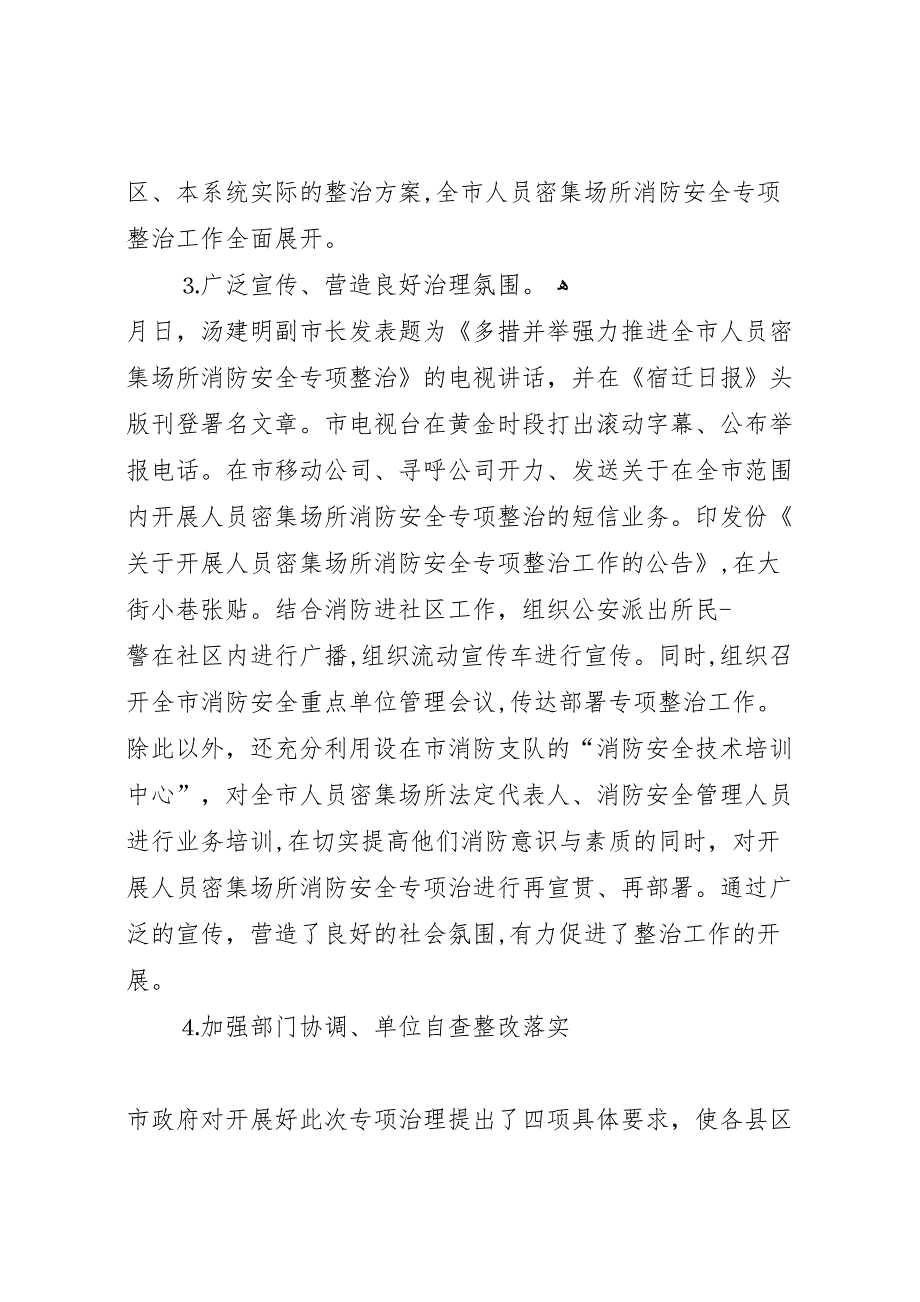 区、本系统实际的整治方案,全市人员密集场所消防安全专项
整治工作全面展开。
3.广泛宣传、营造良好治理氛围。 ﻫ
月日，汤建明副市长发表题为《多措并举强力推进全市人员密
集场所消防安全专项整治》的电视讲话，并在《宿迁日报》头
版刊登署名文章。市电视台在黄金时段打出滚动字幕、公布举
报电话。在市移动公司、寻呼公司开力、发送关于在全市范围
内开展人员密集场所消防安全专项整治的短信业务。印发份《
关于开展人员密集场所消防安全专项整治工作的公告》,在大
街小巷张贴。结合消防进社区工作，组织公安派出所民-
警在社区内进行广播,组织流动宣传车进行宣传。同时,组织召
开全市消防安全重点单位管理会议,传达部署专项整治工作。
除此以外，还充分利用设在市消防支队的“消防安全技术培训
中心”，对全市人员密集场所法定代表人、消防安全管理人员
进行业务培训,在切实提高他们消防意识与素质的同时，对开
展人员密集场所消防安全专项治进行再宣贯、再部署。通过广
泛的宣传，营造了良好的社会氛围,有力促进了整治工作的开
展。
4.加强部门协调、单位自查整改落实
市政府对开展好此次专项治理提出了四项具体要求，使各县区